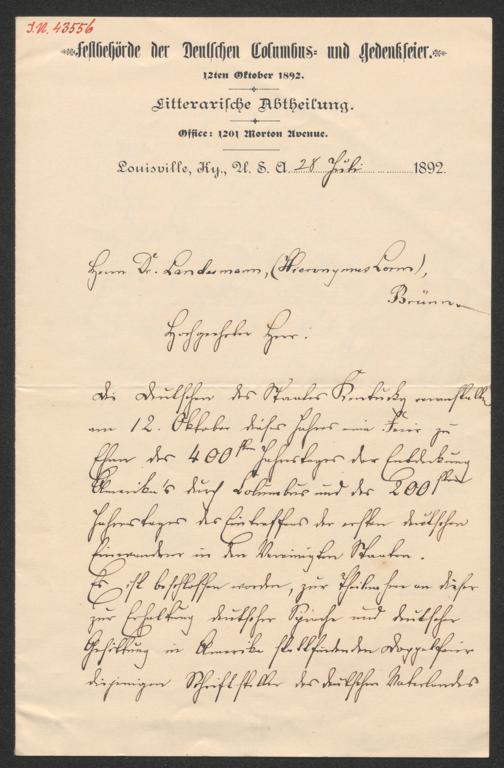 I.N. 43556
Festbehörde der Deutschen Columbus- und Gedenkfeier.
12ten Oktober 1892.
Litterarische Abtheilung.
Office: 1201 Morton Avenue.
Louisville, Ky., U. S. A. 28 Juli 1892.
Herrn Dr. Landesmann, (Hieronymus Lorm),
Brünn
Hochgeehrter Herr:
Die Deutschen des Staates Kentucky veranstalten
am 12. Oktober dieses Jahres eine Feier zu
Ehren des 400sten Jahrestages der Entdeckung
Amerika's durch Columbus und des 200sten
Jahrestages des Eintreffens der ersten deutschen
Einwanderer in den Vereinigten Staaten.
Es ist beschlossen worden, zur Theilnahme an dieser
zur Erhaltung deutscher Sprache und deutscher
Gesittung in Amerika stattfindenden Doppelfeier
diejenigen Schriftsteller des deutschen Vaterlandes